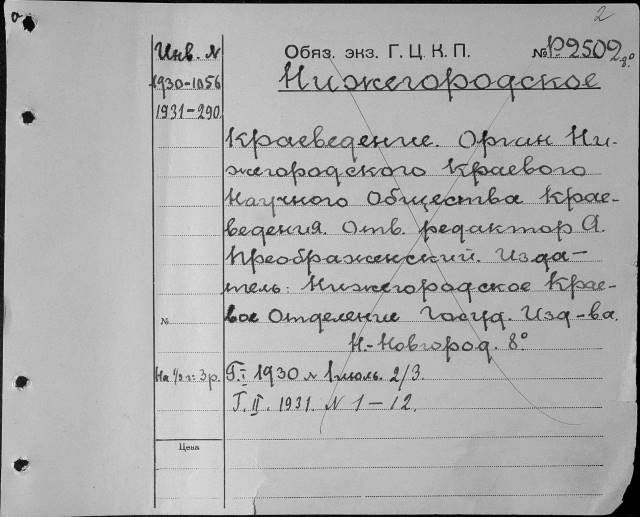 2
Инв. N
Обяз. экз. Г. Ц. К. П.
№ Р2502 8°
1930-1056
Нижегородское
1931-290.
Краеведение. Орган Ни-
жегородского Краевого
Научного Общества Крае-
ведения. Отв. редактор А.
Преображенский. Изда-
тель: Нижегородское Крае-
вое Отделение Госуд. Изд-ва.
№
Н.-Новгород. 8°
На 1/2 г: 3 р.
Г. I 1930 N 1 июль. 2/3.
Г. II. 1931. N 1-12.
Цена